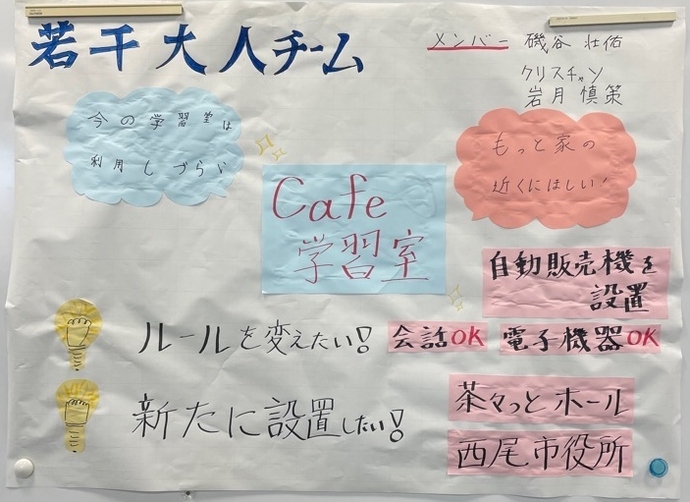 若干大人チーム
メンバー 磯谷 壮佑
クリスチャン
岩月 慎策
今の学習室は
利用しづらい
もっと家の
近くにほしい！
Cafe
学習室
自動販売機を
設置
ルールを変えたい！ 会話OK 電子機器OK
新たに設置したい！
茶々っとホール
西尾市役所